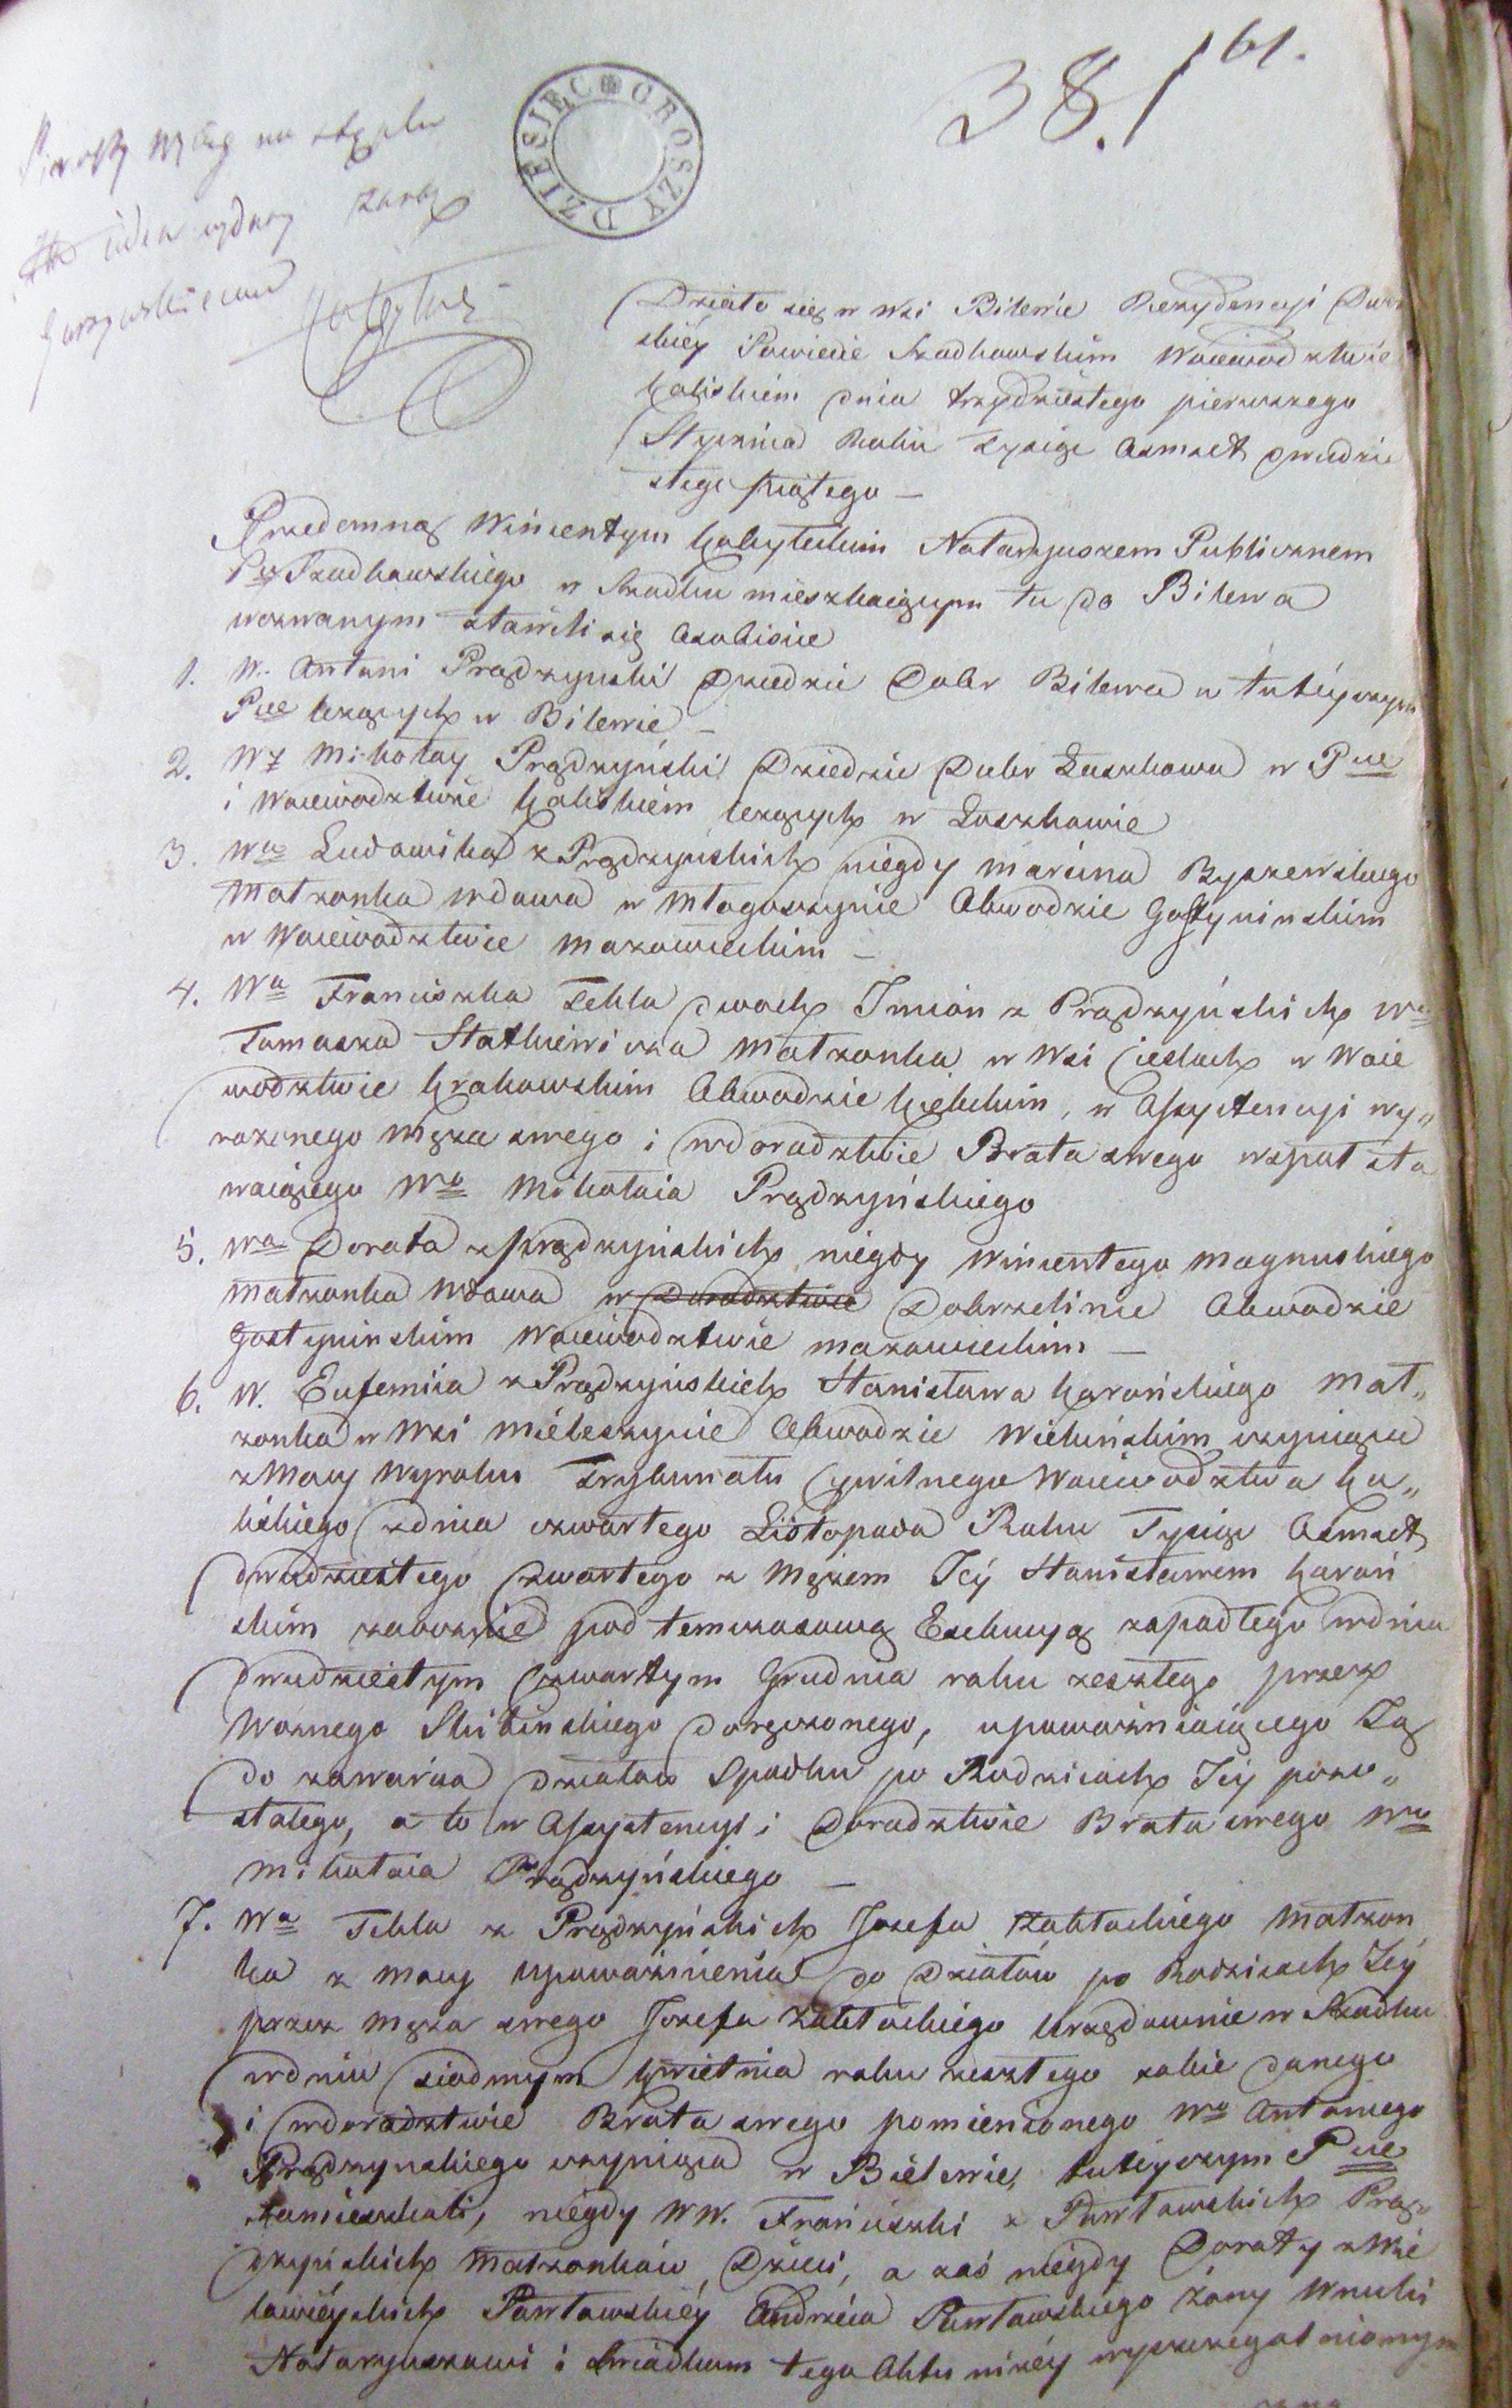 38. 161.
DZIESIĘC GROSZY
Pierwszy wyciąg na stęplu
wydany zaraz
Działo się w wsi Bilewie Rezydencyi Dwor
skiéy Powiecie Szadkowskim Woiewodztwie
Kaliskiem dnia trzydziestego pierwszego
Stycznia Roku Tysiąc Osmset dwudzie
stego piątego —
Przedemną Wincentym Kobyłeckim Notaryuszem Publicznem
Ptu Szadkowskiego w Szadku mieszkaiącym tu do Bilewa
wezwanym stawili się Osobiscie
1. W. Antoni Prądzynski Dziedzic Dobr Bilewa w tuteyszym
Pcie leżących w Bilewie —
2. WJ Mikołay Prądzyński Dziedzic Dobr Łaszkowa w Pcie
i Woiewodztwie Kaliskiém leżących w Łaszkowie
3. Wa Ludowika z Prądzynskich niegdy Marcina Byszewskiego
Małżonka wdowa w Młogoszynie Obwodzie Gostyninskim
w Woiewodztwie Mazowieckim —
4. Wa Franciszka Tekla dwoch Imion z Prądzyńskich Wo
Tomasza Statkiewicza Małżonka w Wsi Cieslach w Woie
wodztwie Krakowskim Obwodzie Kieleckim, w Assystencyi wy„
rażonego męża swego i w doradztwie Brata swego wspul sta
waiącego Wo Mikołaia Prądzyńskiego
5. Wa Dorota z Prądzyńskich niegdy Wincentego Magnuskiego
małżonka wdowa w Doradztwie Dobrzelinie Obwodzie
Gostyninskim Woiewodztwie mazowieckim —
6. W. Eufemiia z Prądzyńskich Stanisława Karońskiego Mał„
żonka w Wsi Miéleszynie Obwodzie Wieluńskim czyniąca
z Mocy Wyroku Trybunału Cywilnego Woiewodztwa Ka„
liskiego z dnia czwartego Listopada Roku Tysiąc Osmset
dwudziestego czwartego z Mężem Jéy Stanisławem Karoń
skim zaocznie pod temczasową Exekucyą zapadłego w dniu
dwudziestym czwartym Grudnia roku zeszłego przez
Woznego Skibinskiego doręczonego, upoważniaiącego Ją
do zawarcia działow Spadku po Rodzicach Jéy pozo„
stałego, a to w Assystencyi i Doradztwie Brata swego Wo
Mikołaia Prądzyńskiego —
7. Wa Tekla z Prądzyńskich Jozefa Zabłockiego Małżon
ka z mocy upoważnienia do Działów po Rodzicach Jéy
przez męża swego Jozefa Zabłockiego Urzędownie w Szadku
w dniu siodmym Kwietnia roku zeszłego sobie danego
i w doradztwie Brata swego pomienionego Wo Antoniego
Prądzynskiego czyniąca w Bielewie, tuteyszym Pcie
zamieszkali, niegdy WW. Franciszki z Pawłowskich Prą„
dzyńskich Małżonków Dzieci, a zaś niegdy Doroty z Wie
Pawłowskiéy Andrzéia Pawłowskiego żony Wnuki
Notaryuszowi i Swiadkom tego Aktu niżéy wyszczegolnionym